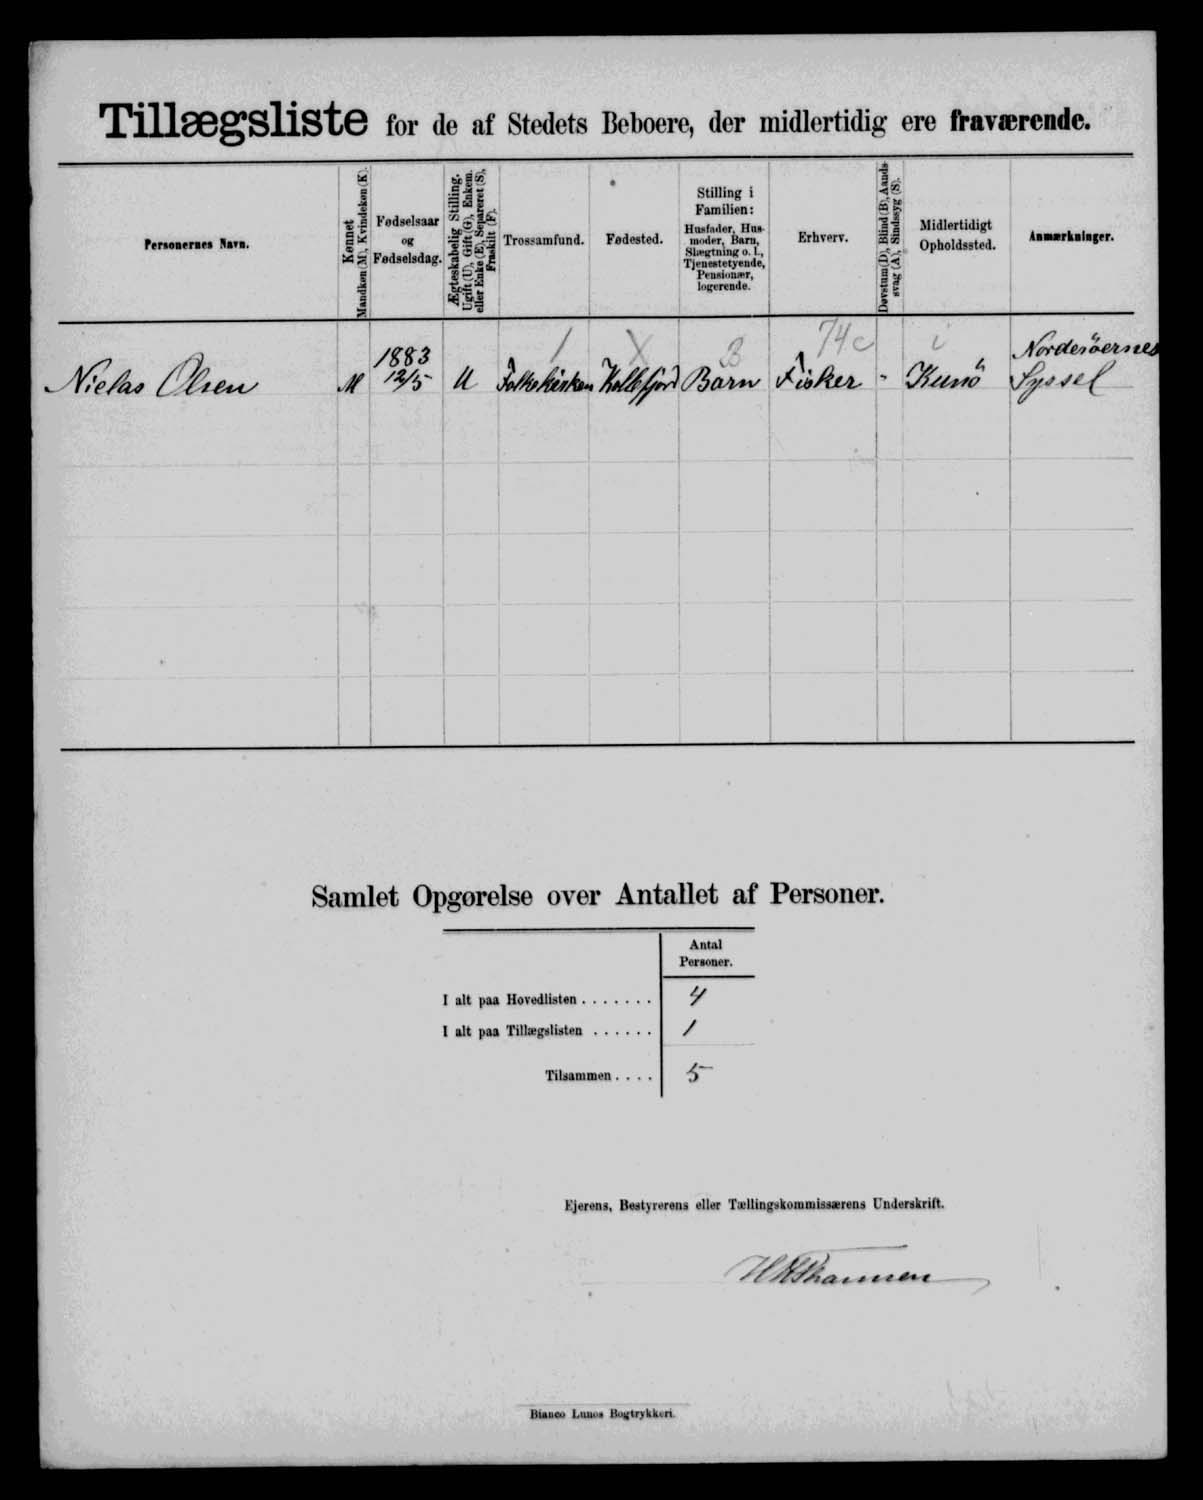 Tillægsliste for de af Stedets Beboere, der midlertidig ere fraværende.
Personernes Navn.
Kønnet
Mandkøn (M), Kvindekøn (K).
Fødselsaar
og
Fødselsdag.
Ægteskabelig Stilling.
Ugift (U), Gift (G), Enkem.
eller Enke (E), Separeret (S),
Fraskilt (F).
Trossamfund.
Fødested.
Stilling i
Familien:
Husfader, Hus-
moder, Barn,
Slægtning o. l.,
Tjenestetyende,
Pensionær,
logerende.
Erhverv.
Døvstum (D), Blind (B), Aands-
svag (A), Sindssyg (S).
Midlertidigt
Opholdssted.
Anmærkninger.
1 X B 74c i
Nielas Olsen M 1883 12/5 U Folkekirken Kollefjord Barn Fisker - Kunö Norderöernes
Syssel
Samlet Opgørelse over Antallet af Personer.
Antal
Personer.
I alt paa Hovedlisten . . . . . . . 4
I alt paa Tillægslisten . . . . . . 1
Tilsammen . . . . 5
Ejerens, Bestyrerens eller Tællingskommissærens Underskrift.
Bianco Lunos Bogtrykkeri.